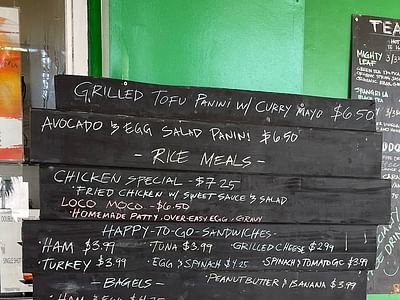 GRILLED TOFU PANINI W/ CURRY MAYO $6.50
AVOCADO & EGG SALAD PANINI $6.50
- RICE MEALS -
CHICKEN SPECIAL - $7.25
·FRIED CHICKEN W/ SWEET SAUCE & SALAD
LOCO MOCO - $6.50
·HOMEMADE PATTY, OVER-EASY EGG, GRAVY
HAPPY-TO-GO-SANDWICHES-
·HAM $3.99 TUNA $3.99 ·GRILLED CHEESE $2.99
·TURKEY $3.99 ·EGG & SPINACH $4.25 ·SPINACH & TOMATO GC $3.99
- BAGELS - ·PEANUT BUTTER & BANANA $3.99
HAM & EGG $4.25
TEA
HOT
MIGHTY LEAF